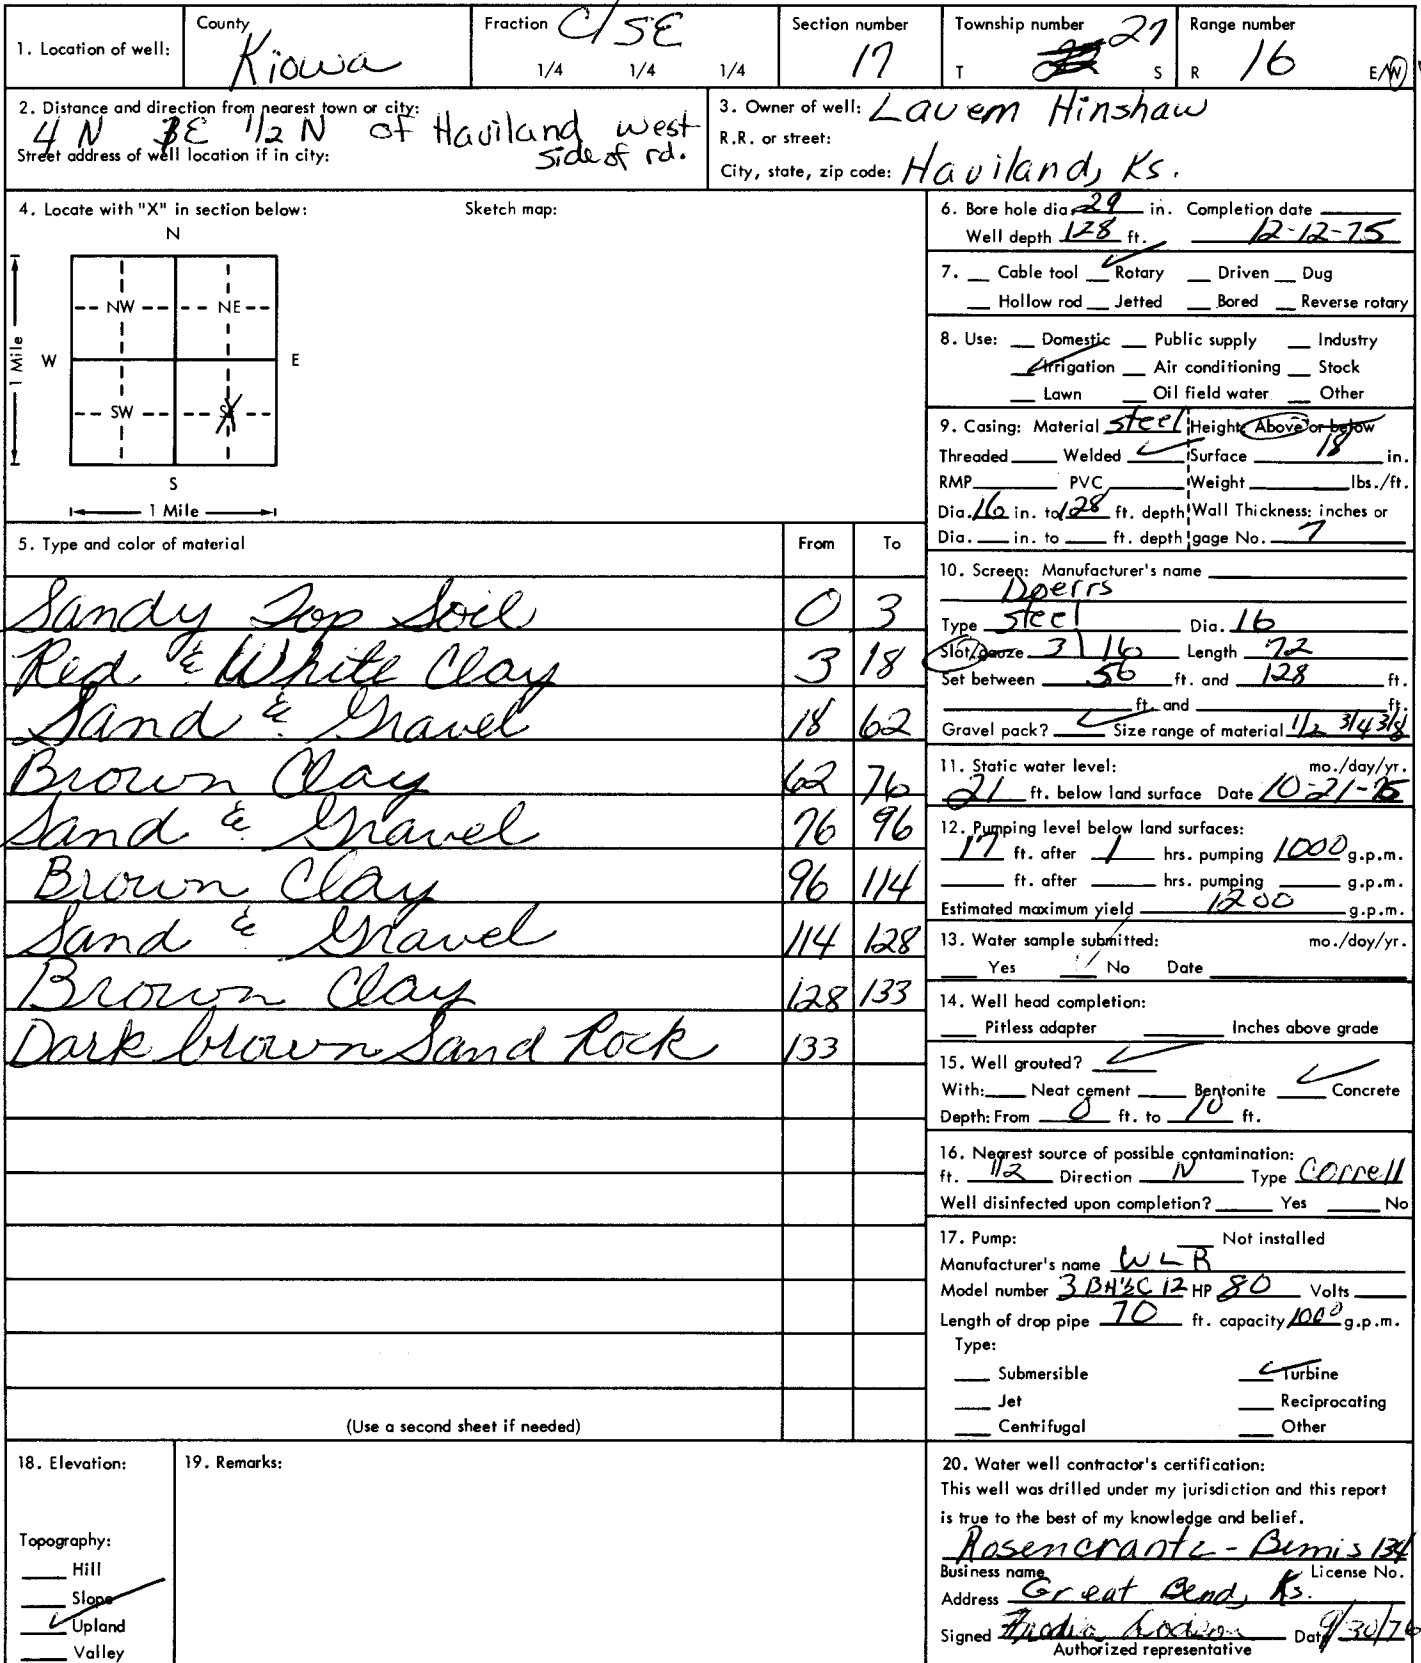 1. Location of well: County Kiowa Fraction C/SE 1/4 1/4 1/4 Section number 17 Township number T 27 S Range number R 16 E/W
2. Distance and direction from nearest town or city: 4 N 3E 1/2 N of Haviland west side of rd.
Street address of well location if in city:
3. Owner of well: Lavern Hinshaw
R.R. or street:
City, state, zip code: Haviland, Ks.
4. Locate with "X" in section below: Sketch map:
N
NW NE
W E
1 Mile
SW SE
S
1 Mile
5. Type and color of material From To
Sandy Top Soil 0 3
Red & White Clay 3 18
Sand & Gravel 18 62
Brown Clay 62 76
Sand & Gravel 76 96
Brown Clay 96 114
Sand & Gravel 114 128
Brown Clay 128 133
Dark brown Sand Rock 133
(Use a second sheet if needed)
6. Bore hole dia. 29 in. Completion date
Well depth 128 ft. 12-12-75
7. Cable tool Rotary Driven Dug
Hollow rod Jetted Bored Reverse rotary
8. Use: Domestic Public supply Industry
Irrigation Air conditioning Stock
Lawn Oil field water Other
9. Casing: Material steel Height: Above or below
Threaded Welded Surface 18 in.
RMP PVC Weight lbs./ft.
Dia. 16 in. to 128 ft. depth Wall Thickness: inches or
Dia. in. to ft. depth gage No. 7
10. Screen: Manufacturer's name
Doerrs
Type steel Dia. 16
Slot/gauze 3/16 Length 72
Set between 56 ft. and 128 ft.
ft. and ft.
Gravel pack? Size range of material 1/2 3/4 3/8
11. Static water level: mo./day/yr.
21 ft. below land surface Date 10-21-75
12. Pumping level below land surfaces:
17 ft. after 1 hrs. pumping 1000 g.p.m.
ft. after hrs. pumping g.p.m.
Estimated maximum yield 1200 g.p.m.
13. Water sample submitted: mo./day/yr.
Yes No Date
14. Well head completion:
Pitless adapter Inches above grade
15. Well grouted?
With: Neat cement Bentonite Concrete
Depth: From 0 ft. to 10 ft.
16. Nearest source of possible contamination:
ft. 1/2 Direction N Type Correll
Well disinfected upon completion? Yes No
17. Pump: Not installed
Manufacturer's name WLR
Model number HP 80 Volts
Length of drop pipe 70 ft. capacity 1000 g.p.m.
Type:
Submersible Turbine
Jet Reciprocating
Centrifugal Other
18. Elevation:
Topography:
Hill
Slope
Upland
Valley
19. Remarks:
20. Water well contractor's certification:
This well was drilled under my jurisdiction and this report
is true to the best of my knowledge and belief.
Rosencrantz-Bemis 134
Business name License No.
Address Great Bend, Ks.
Signed Date 9/30/76
Authorized representative